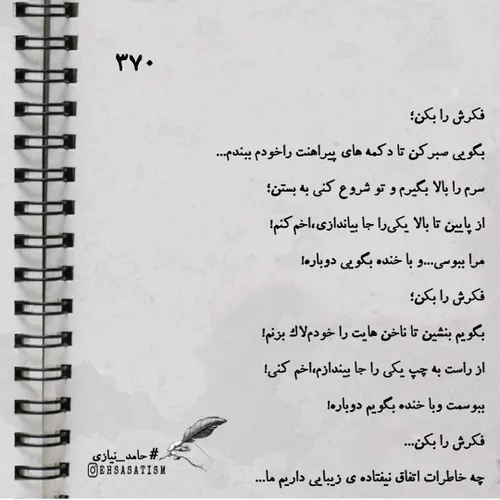 ۳۷۰
فکرش را بکن؛
بگویی صبرکن تا دکمه های پیراهنت راخودم ببندم...
سرم را بالا بگیرم و تو شروع کنی به بستن؛
از پایین تا بالا یکی‌را جا بیاندازی،اخم کنم!
مرا ببوسی...و با خنده بگویی دوباره!
فکرش را بکن؛
بگویم بنشین تا ناخن هایت را خودم‌لاک بزنم!
از راست به چپ یکی را جا بیندازم،اخم کنی!
ببوسمت وبا خنده بگویم دوباره!
فکرش را بکن...
چه خاطرات اتفاق نیفتاده ی زیبایی داریم ما...
#حامد_نیازی
@EHSASATISM